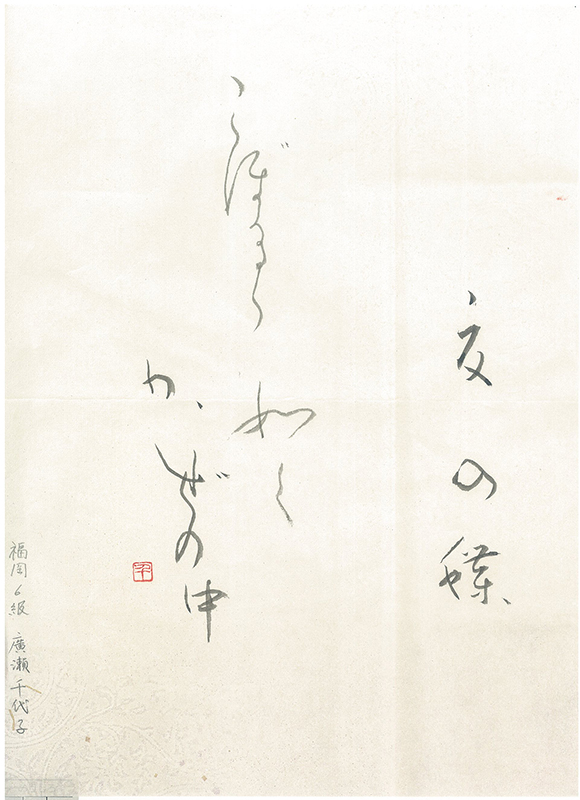 夏の蝶
こぼるゝ如く
かぜの中
福岡6級 廣瀬千代子